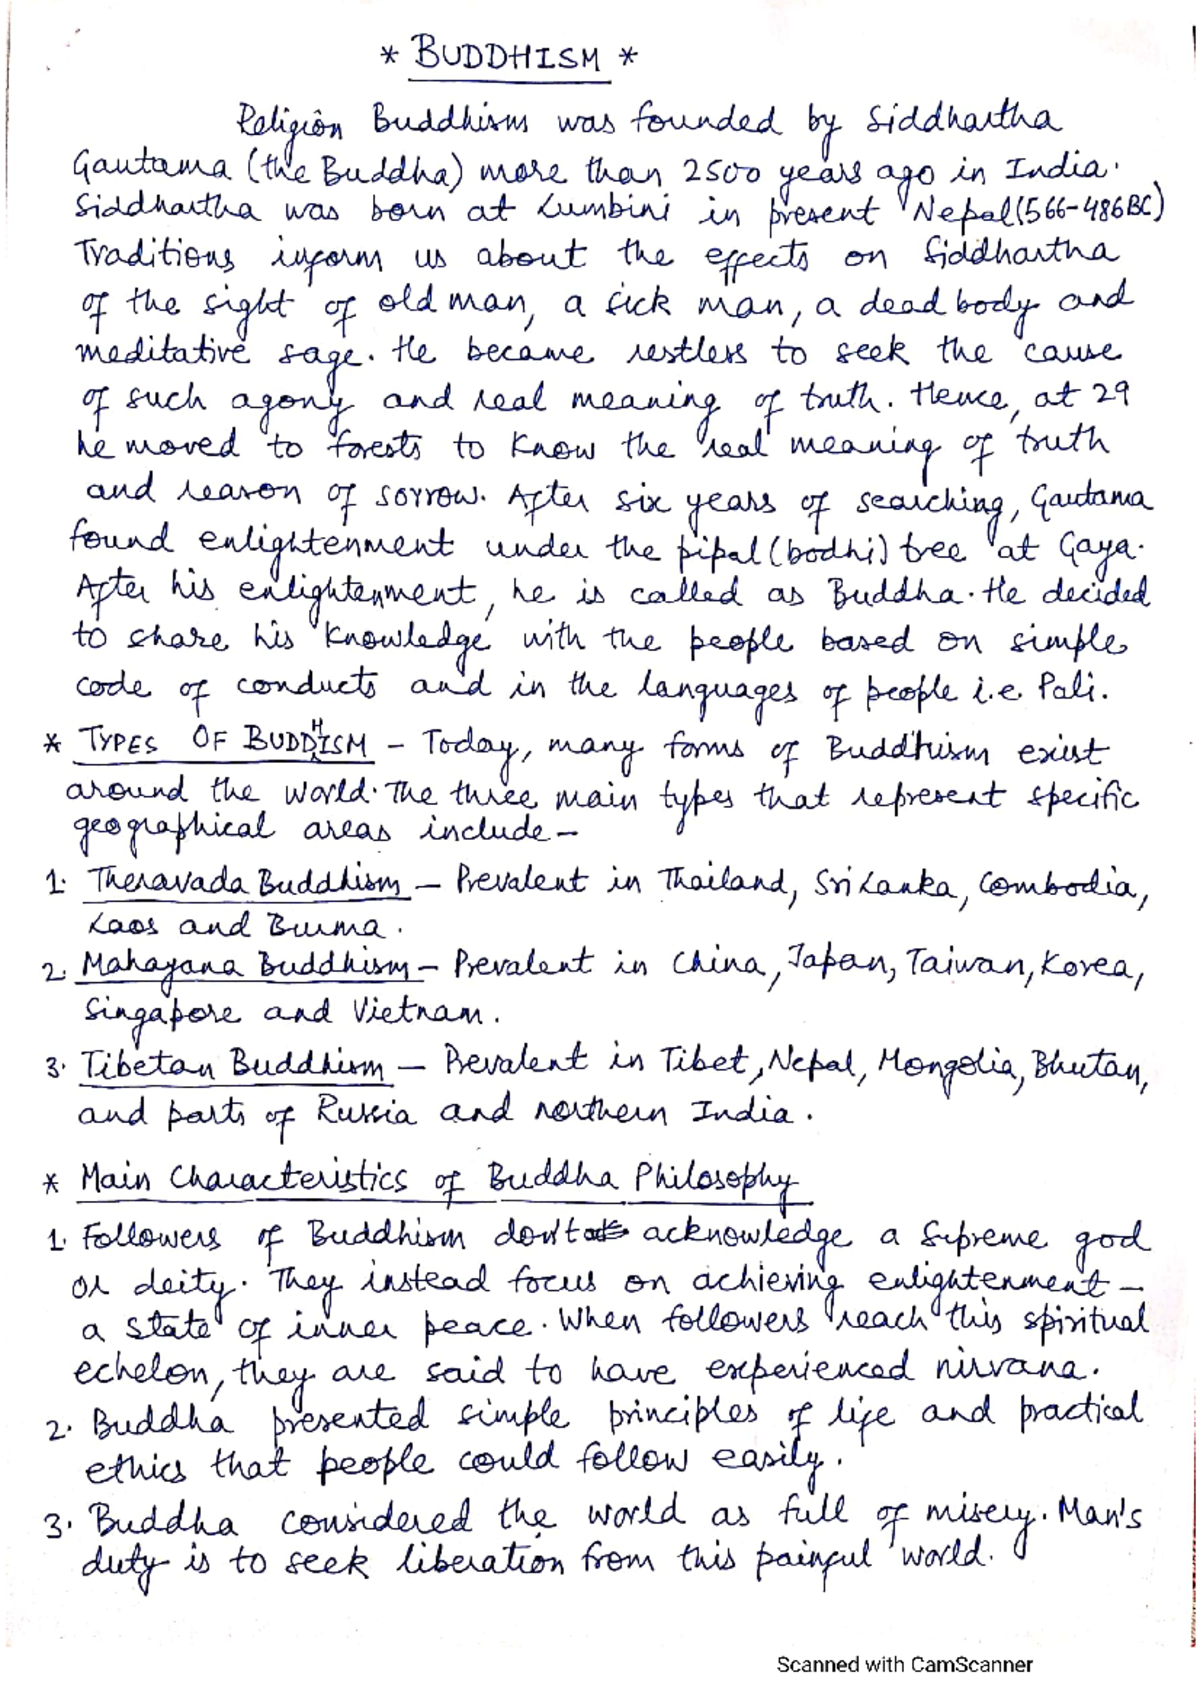 * BUDDHISM *
Religion Buddhism was founded by Siddhartha
Gautama (the Buddha) more than 2500 years ago in India.
Siddhartha was born at Lumbini in present Nepal (566-486BC)
Traditions inform us about the effects on Siddhartha
of the sight of old man, a sick man, a dead body and
meditative sage. He became restless to seek the cause
of such agony and real meaning of truth. Hence, at 29
he moved to forests to know the real meaning of truth
and reason of sorrow. After six years of searching, Gautama
found enlightenment under the pipal (bodhi) tree at Gaya.
After his enlightenment, he is called as Buddha. He decided
to share his knowledge with the people based on simple
code of conducts and in the languages of people i.e. Pali.
* TYPES OF BUDDHISM - Today, many forms of Buddhism exist
around the world. The three main types that represent specific
geographical areas include -
1. Theravada Buddhism - Prevalent in Thailand, Sri Lanka, Combodia,
Laos and Burma.
2. Mahayana Buddhism - Prevalent in China, Japan, Taiwan, Korea,
Singapore and Vietnam.
3. Tibetan Buddhism - Prevalent in Tibet, Nepal, Mongolia, Bhutan,
and parts of Russia and northern India.
* Main Characteristics of Buddha Philosophy
1. Followers of Buddhism don't acknowledge a supreme god
or deity. They instead focus on achieving enlightenment -
a state of inner peace. When followers reach this spiritual
echelon, they are said to have experienced nirvana.
2. Buddha presented simple principles of life and practical
ethics that people could follow easily.
3. Buddha considered the world as full of misery. Man's
duty is to seek liberation from this painful world.
Scanned with CamScanner